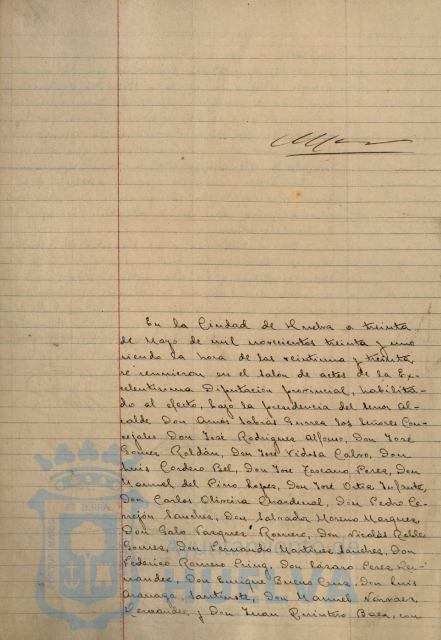 En la Ciudad de Huelva a treinta
de Mayo de mil novecientos treinta y uno
siendo la hora de las veintiuna y treinta
se reunieron en el salon de actos de la Ex-
celentisima Diputación provincial, habilita-
do al efecto, bajo la presidencia del Señor Al-
calde Don Amos Sabrás Gurrea los Señores Con-
cejales Don José Rodriguez Alfonso, Don José
Gomez Roldán, Don José Vidosa Calvo, Don
Luis Cordero Bel, Don José Toscano Perez, Don
Manuel del Pino Lopez, Don José Ortiz Infante,
Don Carlos Oliveira Chardenal, Don Pedro Ce-
rejón Sanchez, Don Salvador Moreno Marquez,
Don Galo Vazquez Romero, Don Nicolás Robles
Gomez, Don Fernando Martinez Sanchez, Don
Federico Romero Don Lázaro Perez Her-
nandez, Don Enrique Bueno Cruz, Don Luis
Don Manuel Narvaez
Fernandez, y Don Juan Quintero Baez, con